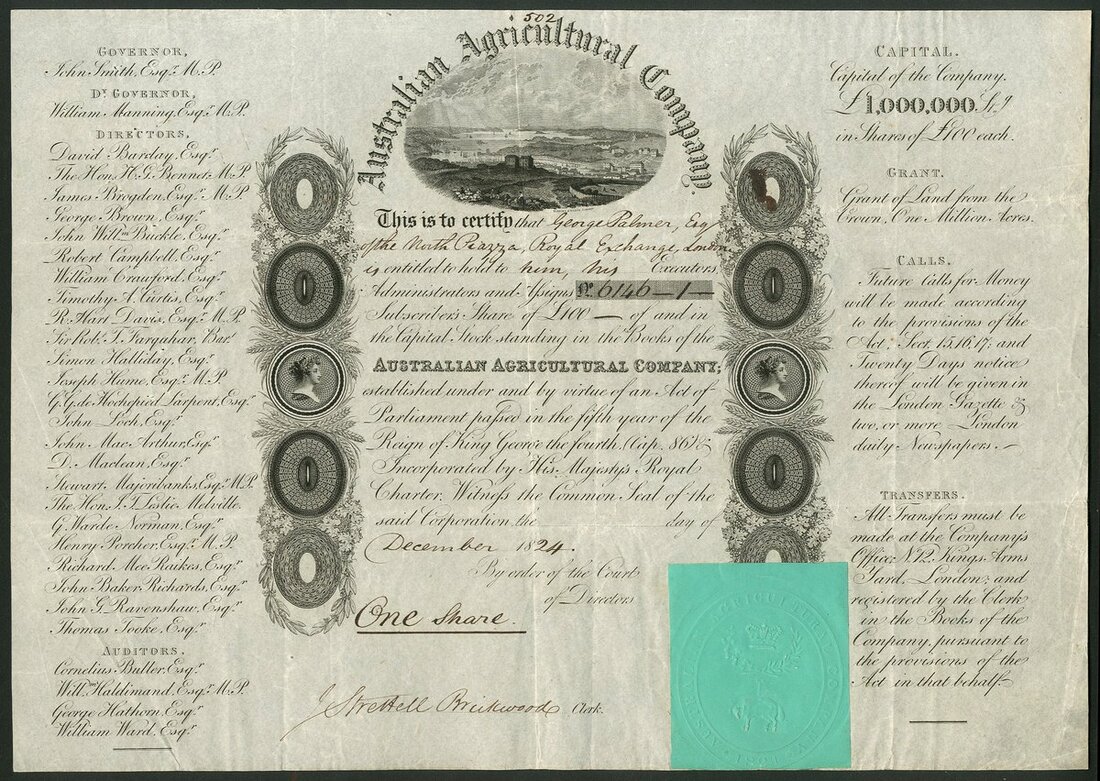 502
Australian Agricultural Company.
GOVERNOR,
John Smith, Esqr. M.P.
Dy. GOVERNOR,
William Manning, Esqr. M.P.
DIRECTORS,
David Barclay, Esqr.
The Hon. H. G. Bennet, M.P.
James Brogden, Esqr. M.P.
George Brown, Esqr.
John Willm. Buckle, Esqr.
Robert Campbell, Esqr.
William Crawford, Esqr.
Timothy A. Curtis, Esqr.
R. Hart Davis, Esqr. M.P.
Sir Robt. T. Farquhar, Bart.
Simon Halliday, Esqr.
Joseph Hume, Esqr. M.P.
G. G. de Hochepied Larpent, Esqr.
John Loch, Esqr.
John Mac Arthur, Esqr.
D. Maclean, Esqr.
Stewart Majoribanks, Esqr. M.P.
The Hon. J. T. Leslie Melville.
G. Warde Norman, Esqr.
Henry Porcher, Esqr. M.P.
Richard Mee Raikes, Esqr.
John Baker Richards, Esqr.
John G. Ravenshaw, Esqr.
Thomas Tooke, Esqr.
AUDITORS.
Cornelius Buller, Esqr.
Willm. Haldimand, Esqr. M.P.
George Hathorn, Esqr.
William Ward, Esqr.
This is to certify that George Palmer, Esq
of the North Piazza, Royal Exchange, London
is entitled to hold to him, his Executors,
Administrators and Assigns No. 6146 — 1 —
Subscriber's Share of £100 — of and in
the Capital Stock standing in the Books of the
AUSTRALIAN AGRICULTURAL COMPANY;
established under and by virtue of an Act of
Parliament passed in the fifth year of the
Reign of King George the fourth, (Cap. 86) &
Incorporated by His Majesty's Royal
Charter. Witness the Common Seal of the
said Corporation, the day of
December 1824.
By order of the Court
of Directors
One Share.
J Strettell Brickwood Clerk.
CAPITAL.
Capital of the Company.
£1,000,000. Stg
in Shares of £100 each.
GRANT.
Grant of Land from the
Crown, One Million Acres.
CALLS.
Future Calls for Money
will be made according
to the provisions of the
Act, Sect. 15, 16, 17; and
Twenty Days notice
thereof will be given in
the London Gazette &
two, or more London
daily Newspapers. —
TRANSFERS.
All Transfers must be
made at the Company's
Office, No. 12, Kings Arms
Yard, London; and
registered by the Clerk
in the Books of the
Company, pursuant to
the provisions of the
Act in that behalf.